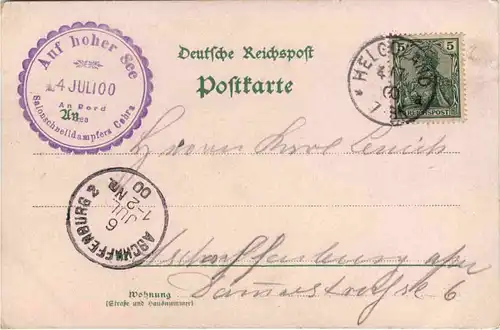 Auf hoher See
4 JULI 00
An Bord
des
Salonschnelldampfers Cobra
Deutsche Reichspost
Postkarte
An
HELGOLAND
4/7
00
5 5
REICHSPOST
Herrn Karl
ASCHAFFENBURG 2
6
JUL
1-2 Nm
00
Aschaffenburg a/M
6
Wohnung
(Straße und Hausnummer)